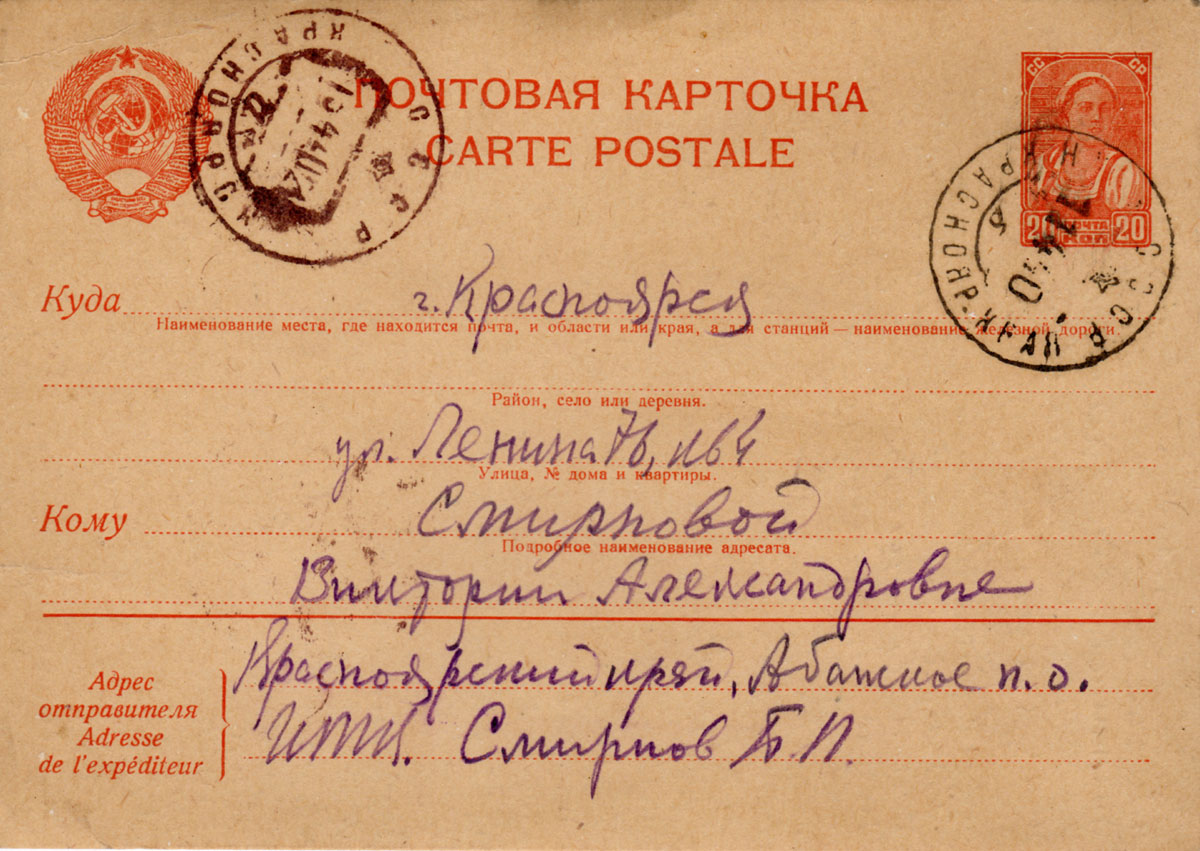 ПОЧТОВАЯ КАРТОЧКА
CARTE POSTALE
СС СР
20 ПОЧТА КОП 20
СССР
КРАСНОЯРСК
СССР
Куда г. Красноярск
Наименование места, где находится почта, и области или края, а для станций — наименование железной дороги.
Район, село или деревня.
ул. Ленина 76, кв 4
Улица, № дома и квартиры.
Кому Смирновой
Подробное наименование адресата.
Виктории Александровне
Адрес отправителя
Adresse de l'expéditeur
Красноярский край, п. о.
Смирнов Б. П.